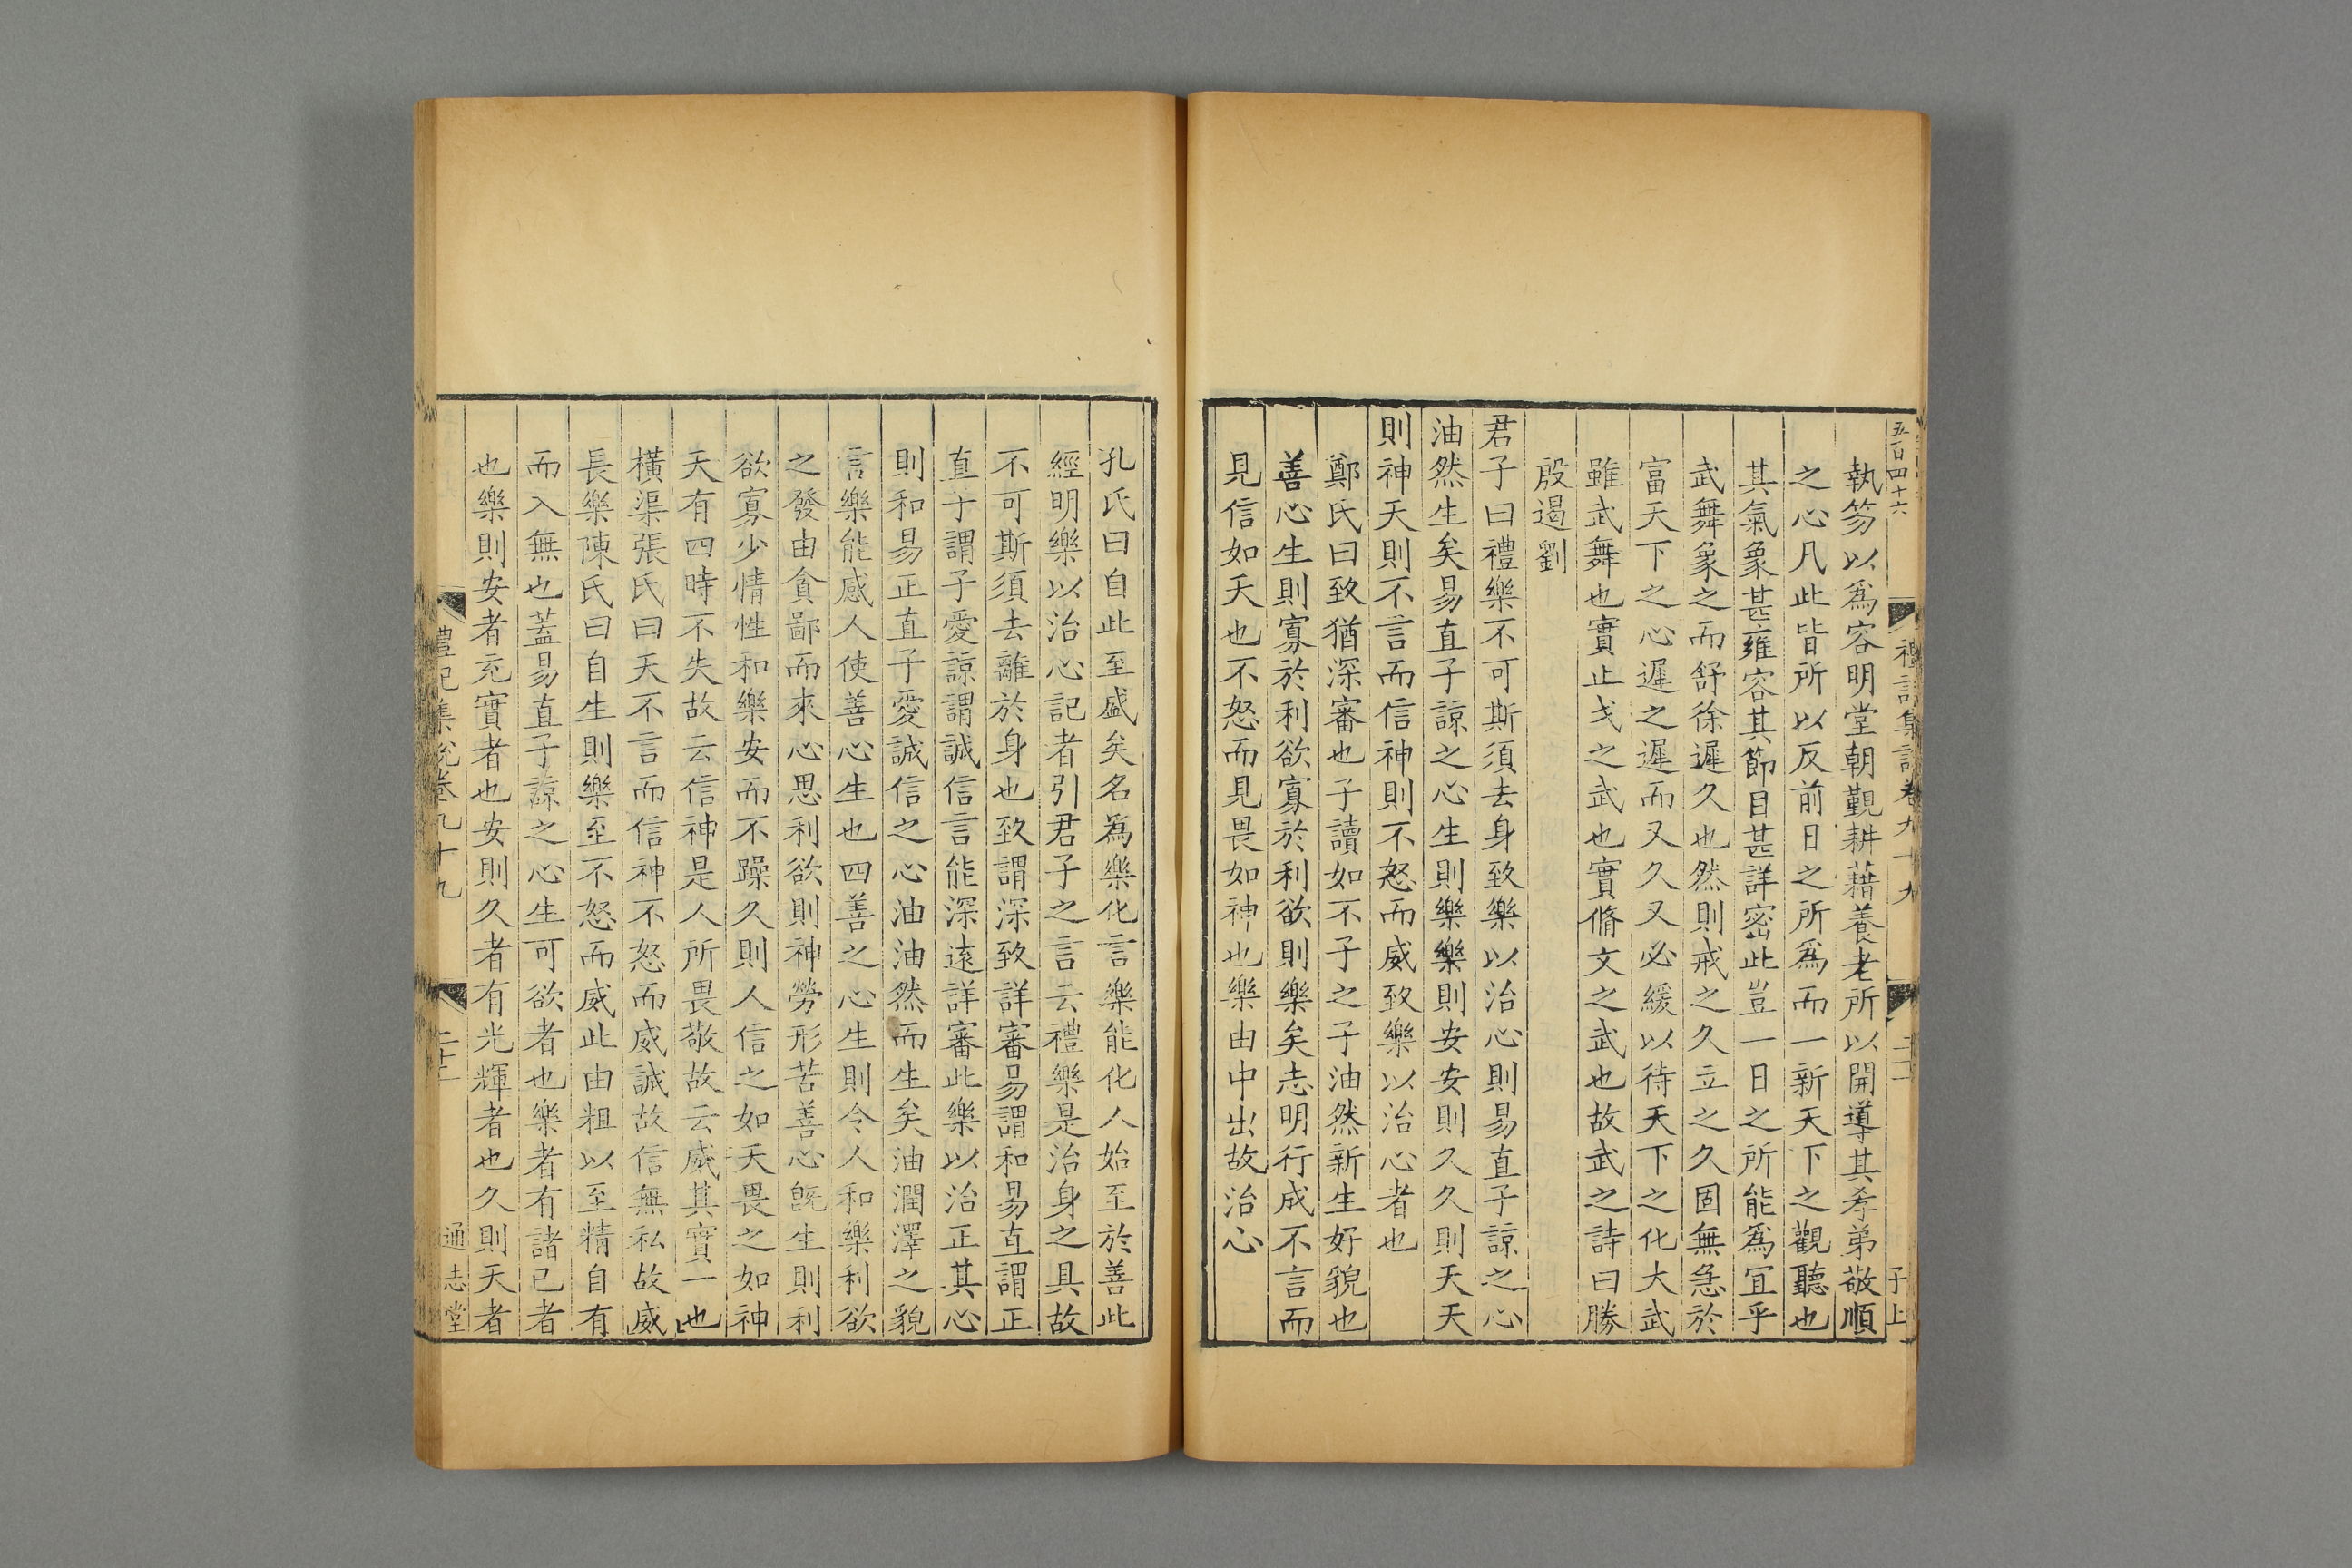 五百四十六
禮記集說卷九十九
子上
執笏以爲容明堂朝覲耕藉養老所以開導其孝弟敬順
之心凡此皆所以反前日之所爲而一新天下之觀聽也
其氣象甚雍容其節目甚詳密此豈一日之所能爲宜乎
武舞象之而舒徐遲久也然則戒之久立之久固無急於
富天下之心遲之遲而又久又必緩以待天下之化大武
雖武舞也實止戈之武也實脩文之武也故武之詩曰勝
殷遏劉
君子曰禮樂不可斯須去身致樂以治心則易直子諒之心
油然生矣易直子諒之心生則樂樂則安安則久久則天天
則神天則不言而信神則不怒而威致樂以治心者也
鄭氏曰致猶深審也子讀如不子之子油然新生好貌也
善心生則寡於利欲寡於利欲則樂矣志明行成不言而
見信如天也不怒而見畏如神也樂由中出故治心
孔氏曰自此至盛矣名爲樂化言樂能化人始至於善此
經明樂以治心記者引君子之言云禮樂是治身之具故
不可斯須去離於身也致謂深致詳審易謂和易直謂正
直子謂子愛諒謂誠信言能深遠詳審此樂以治正其心
則和易正直子愛誠信之心油油然而生矣油潤澤之貌
言樂能感人使善心生也四善之心生則令人和樂利欲
之發由貪鄙而來心思利欲則神勞形苦善心旣生則利
欲寡少情性和樂安而不躁久則人信之如天畏之如神
天有四時不失故云信神是人所畏敬故云威其實一也
橫渠張氏曰天不言而信神不怒而威誠故信無私故威
長樂陳氏曰自生則樂至不怒而威此由粗以至精自有
而入無也蓋易直子諒之心生可欲者也樂者有諸已者
也樂則安者充實者也安則久者有光輝者也久則天者
禮記集說卷九十九
通志堂